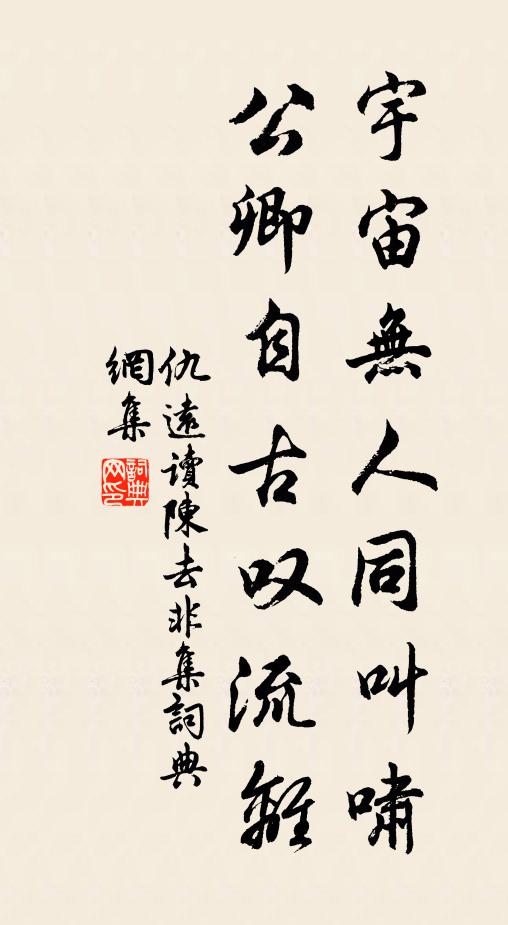 宇宙無人同叫嘯
公卿自古叹流離
仇遠讀陳去非集詞典
網集
詞典網印